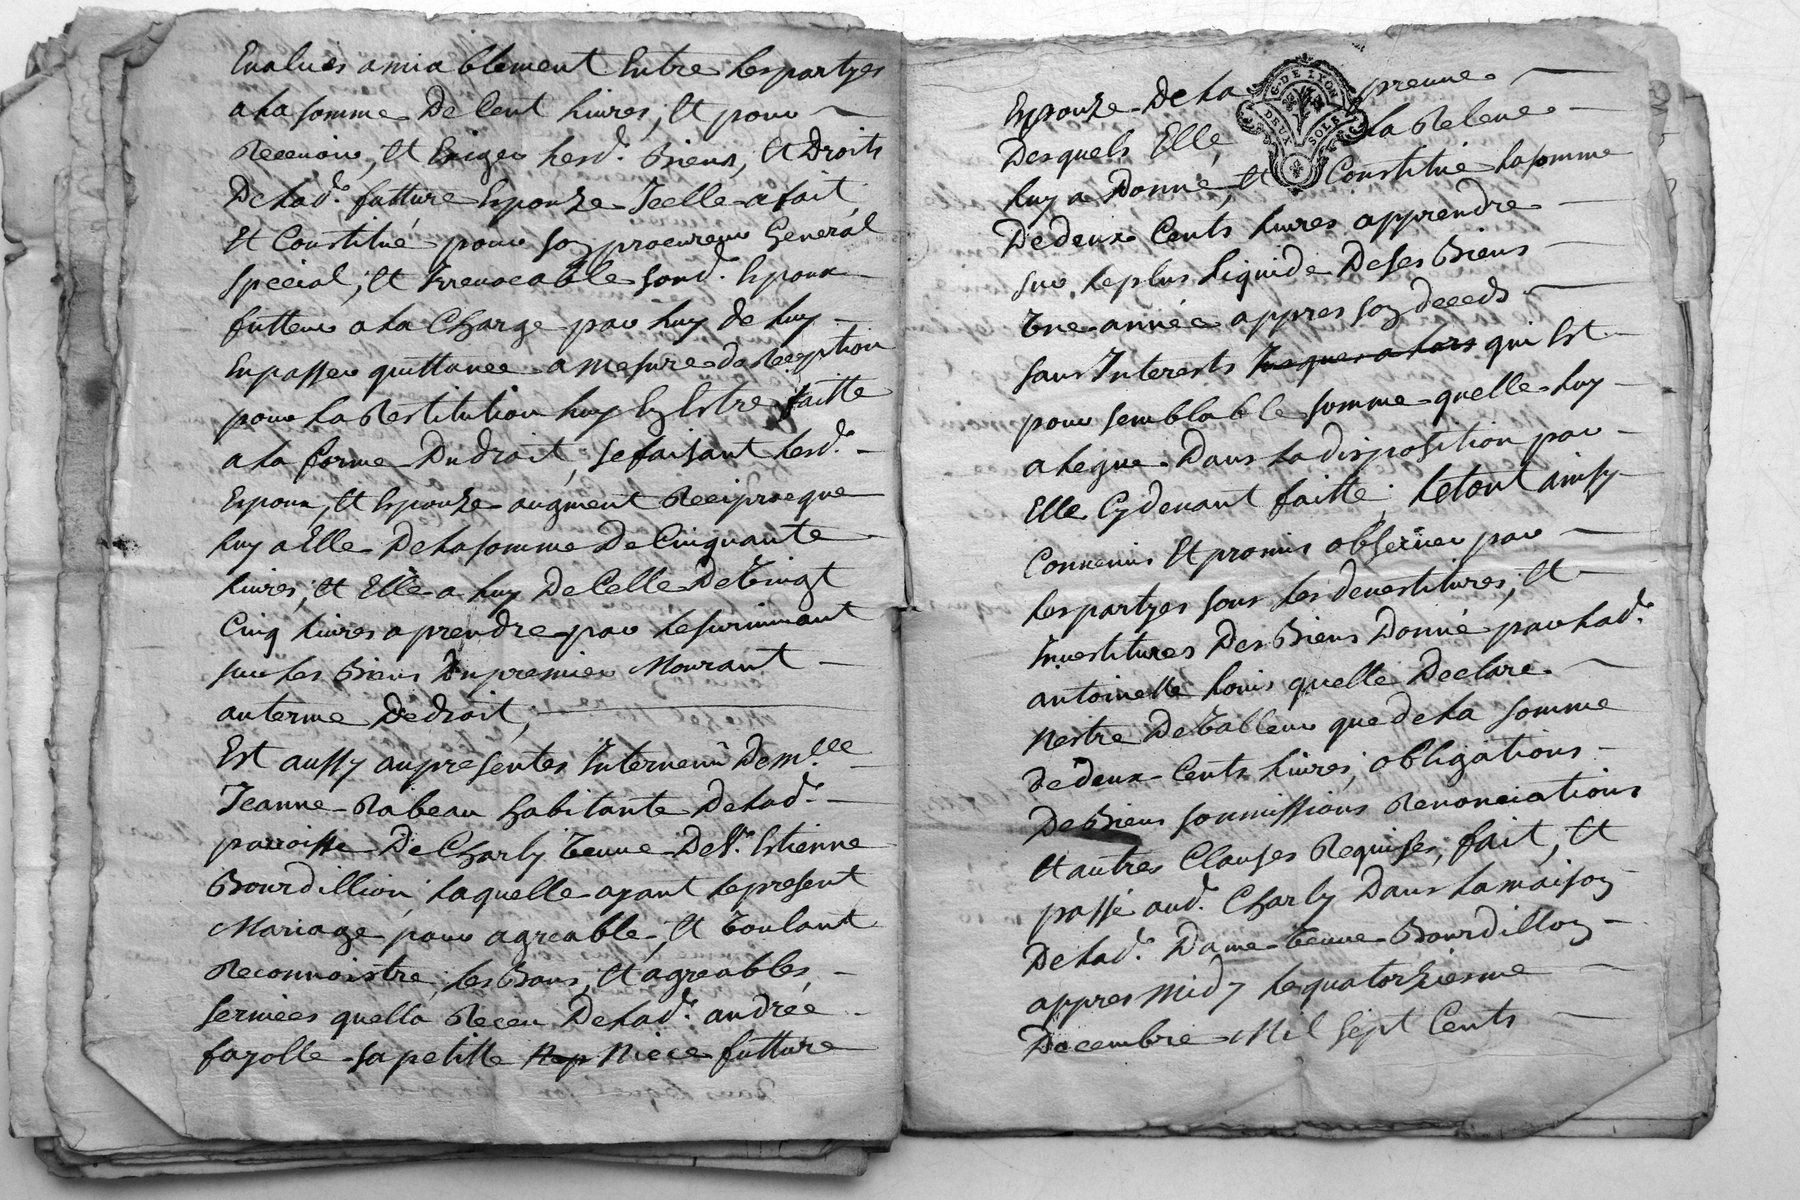 Evalués amiablement Entre Les partyes
a La somme De Cent Livres, Et pour
Recevoir, Et Exiger Lesd. Biens, Et Droits
De Lad.e future Epouze Icelle a fait,
Et Constitué pour son procureur General
special, Et Irrevocable sond. Epoux
futteur a La Charge par Luy de Luy
En passer quittance a mesure de Reception
pour La Restitution Luy En Estre faitte
a La forme Du droit, se faisant Lesd.s
Epoux, Et Epouze augment Reciproque
Luy a Elle De La somme De Cinquante
Livres, Et Elle a Luy De Celle De Vingt
Cinq Livres a prendre par Le survivant
sur Les Biens Du premier Mourant
au terme De droit,
Est aussy au presentes Intervenû Dem.lle
Jeanne Rabeau habitante De Lad.e
parroisse De Charly Veuve De S.r Estienne
Bourdillion, Laquelle ayant Le present
Mariage pour agreable, Et Voulant
Reconnoistre, Les Bons, Et agreables
services quella Receu De Lad.e andrée
fayolle sa petitte Nep Niece futture
Epouze De La preuve
Desquels Elle La Releve
Luy a Donné, Et Constitué La somme
De deux Cents Livres apprendre
sur Le plus Liquide De ses Biens
Une année appres son deceds
sans Interests Jusques a Lors qui Est
pour semblable somme quelle Luy
a Legue Dans La disposition par
Elle Cy devant faitte, Le tout ainsy
Convenus Et promis observer par
Les partyes sous Les devestitures, Et
Investitures Des Biens Donné par Lad.e
antoinette Louis quelle Declare
Nestre De Valleur que de La somme
de deux Cents Livres, obligations
De Biens soumissions Renonciations
Et autres Clauses Requises, fait, Et
passé aud. Charly Dans La maison
De Lad.e Dame Veuve Bourdillon
appres midy Le quatorziesme
Decembre Mil Sept Cents
G. DE LYON
DEUX SOLS